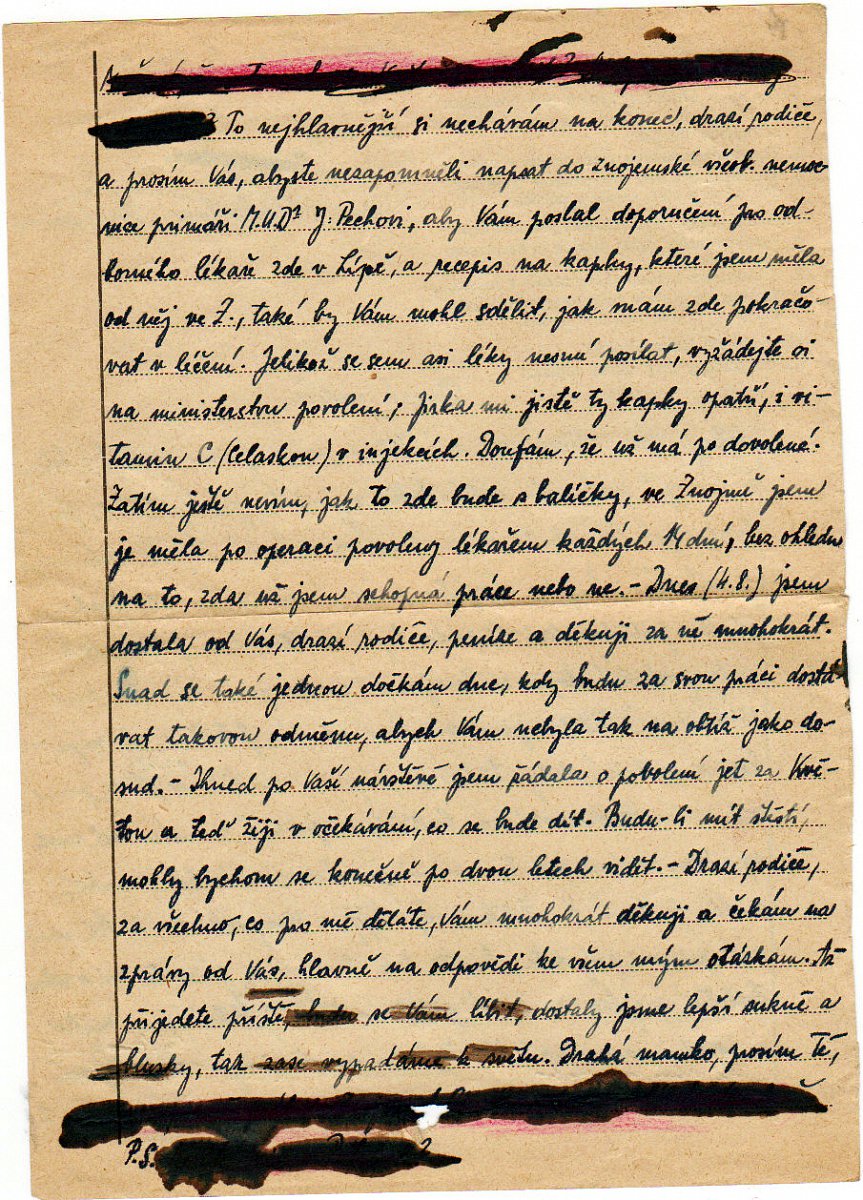 To nejhlavnější si nechávám na konec, drazí rodiče,
a prosím Vás, abyste nezapomněli napsat do znojemské všeob. nemoc-
nice primáři M.U.Dr J. Pechovi, aby Vám poslal doporučení pro od-
borného lékaře zde v Lípě, a recepis na kapky, které jsem měla
od něj ve Z., také by Vám mohl sdělit, jak mám zde pokračo-
vat v léčení. Jelikož se sem asi léky nesmí posílat, vyžádejte si
na ministerstvu povolení; Jirka mi jistě ty kapky opatří, i vi-
tamin C (Celaskon) v injekcích. Doufám, že už má po dovolené.
Zatím ještě nevím, jak to zde bude s balíčky, ve Znojmě jsem
je měla po operaci povoleny lékařem každých 14 dní, bez ohledu
na to, zda už jsem schopná práce nebo ne. – Dnes (4.8.) jsem
dostala od Vás, drazí rodiče, peníze a děkuji za ně mnohokrát.
Snad se také jednou dočkám dne, kdy budu za svou práci dostá-
vat takovou odměnu, abych Vám nebyla tak na obtíž jako do-
sud. – Ihned po Vaší návštěvě jsem žádala o povolení jet za Kvě-
tou a teď žiji v očekávání, co se bude dít. Budu-li mít štěstí,
mohly bychom se konečně po dvou letech vidět. – Drazí rodiče,
za všechno, co pro mě děláte, Vám mnohokrát děkuji a čekám na
zprávy od Vás, hlavně na odpovědi ke všem mým otázkám. Až
přijedete příště, budu se Vám líbit, dostaly jsme lepší sukně a
blusky, tak zase vypadáme k světu. Drahá mamko, prosím Tě,
P.S.